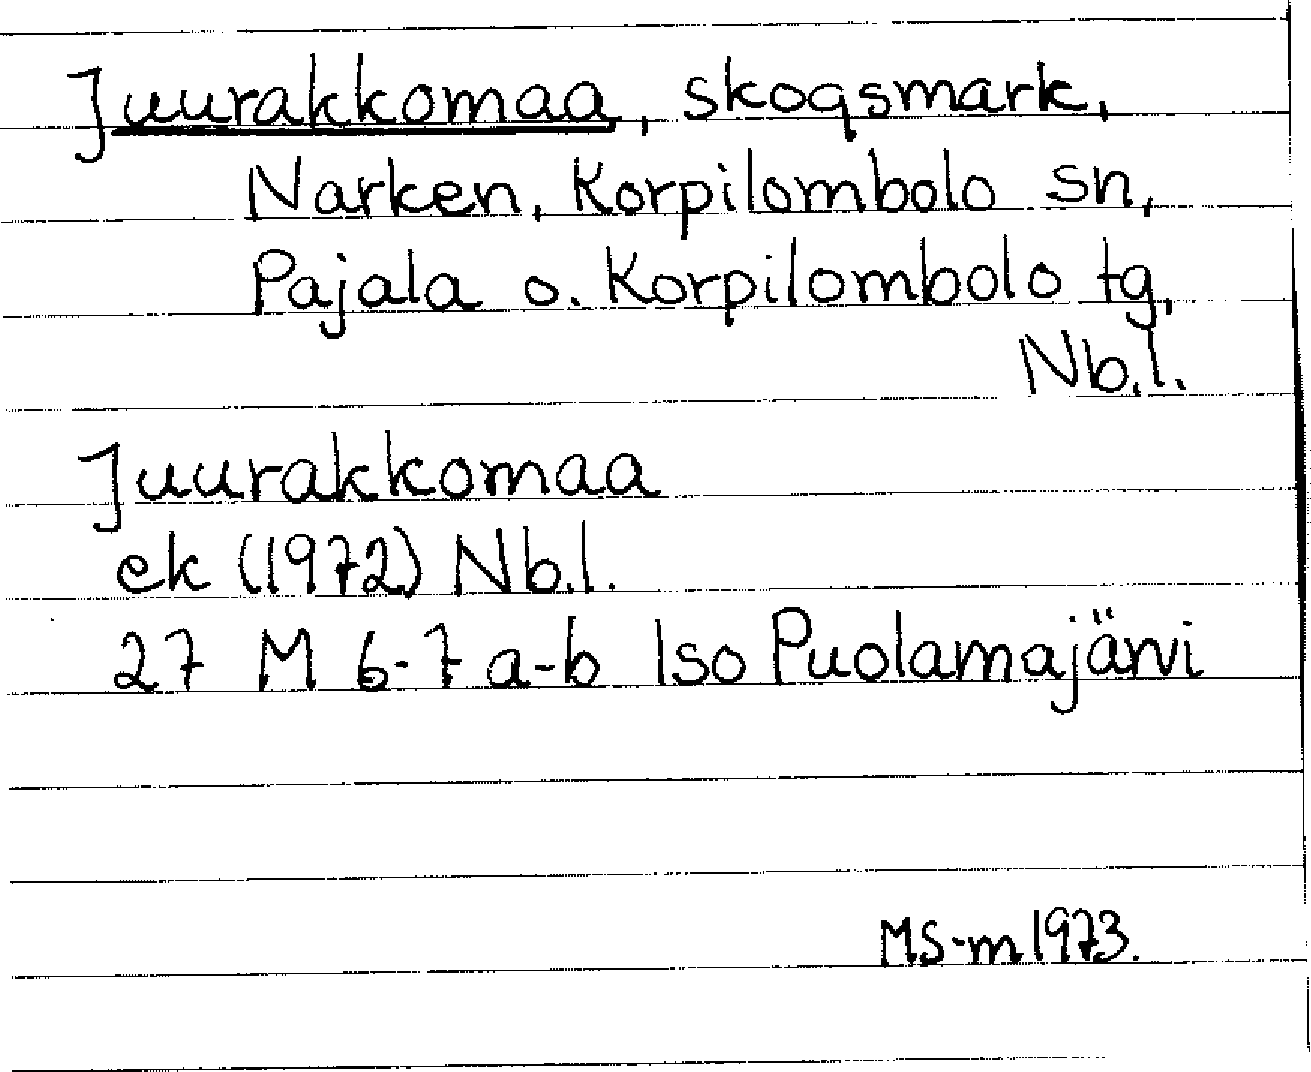 Juurakkomaa, skogsmark,
Narken, Korpilombolo sn,
Pajala o. Korpilombolo tg,
Nb.l.
Juurakkomaa
ek (1972) Nb.l.
27 M 6-7 a-b Iso Puolamajärvi
MS-m 1973.